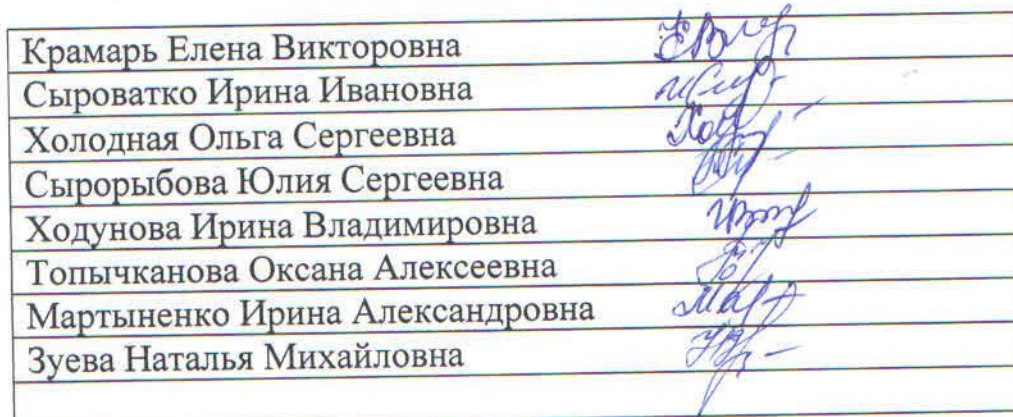 Крамарь Елена Викторовна
Сыроватко Ирина Ивановна
Холодная Ольга Сергеевна
Сырорыбова Юлия Сергеевна
Ходунова Ирина Владимировна
Топычканова Оксана Алексеевна
Мартыненко Ирина Александровна
Зуева Наталья Михайловна